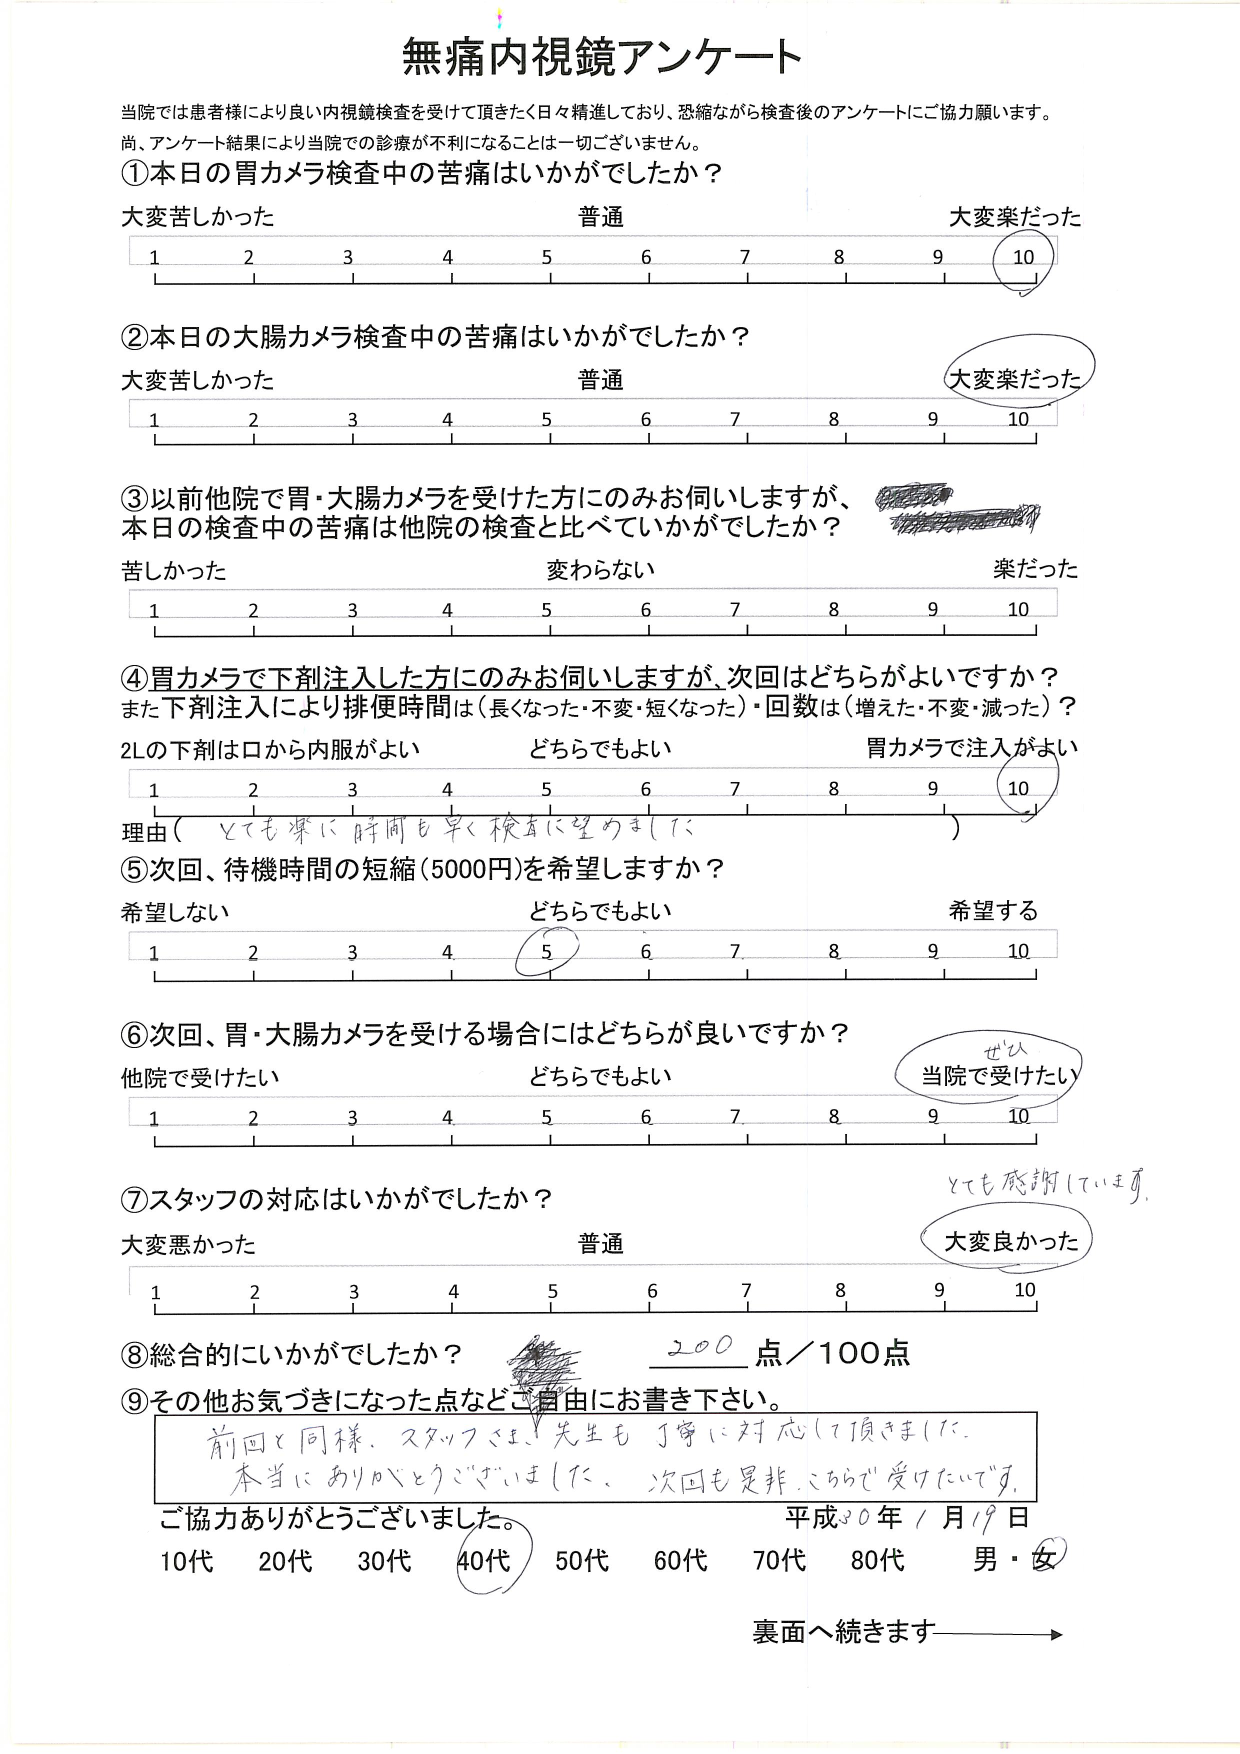 無痛内視鏡アンケート
当院では患者様により良い内視鏡検査を受けて頂きたく日々精進しており、恐縮ながら検査後のアンケートにご協力願います。
尚、アンケート結果により当院での診療が不利になることは一切ございません。
①本日の胃カメラ検査中の苦痛はいかがでしたか？
大変苦しかった 普通 大変楽だった
1 2 3 4 5 6 7 8 9 10
②本日の大腸カメラ検査中の苦痛はいかがでしたか？
大変苦しかった 普通 大変楽だった
1 2 3 4 5 6 7 8 9 10
③以前他院で胃・大腸カメラを受けた方にのみお伺いしますが、
本日の検査中の苦痛は他院の検査と比べていかがでしたか？
苦しかった 変わらない 楽だった
1 2 3 4 5 6 7 8 9 10
④胃カメラで下剤注入した方にのみお伺いしますが、次回はどちらがよいですか？
また下剤注入により排便時間は（長くなった・不変・短くなった）・回数は（増えた・不変・減った）？
2Lの下剤は口から内服がよい どちらでもよい 胃カメラで注入がよい
1 2 3 4 5 6 7 8 9 10
理由（ とても楽に 時間も早く検査に望めました ）
⑤次回、待機時間の短縮（5000円）を希望しますか？
希望しない どちらでもよい 希望する
1 2 3 4 5 6 7 8 9 10
⑥次回、胃・大腸カメラを受ける場合にはどちらが良いですか？
ぜひ
他院で受けたい どちらでもよい 当院で受けたい
1 2 3 4 5 6 7 8 9 10
とても感謝しています。
⑦スタッフの対応はいかがでしたか？
大変悪かった 普通 大変良かった
1 2 3 4 5 6 7 8 9 10
⑧総合的にいかがでしたか？ 200 点／100点
⑨その他お気づきになった点などご自由にお書き下さい。
前回と同様、スタッフさま、先生も 丁寧に対応して頂きました。
本当にありがとうございました。 次回も是非、こちらで受けたいです。
ご協力ありがとうございました。 平成30年1月19日
10代 20代 30代 40代 50代 60代 70代 80代 男・女
裏面へ続きます